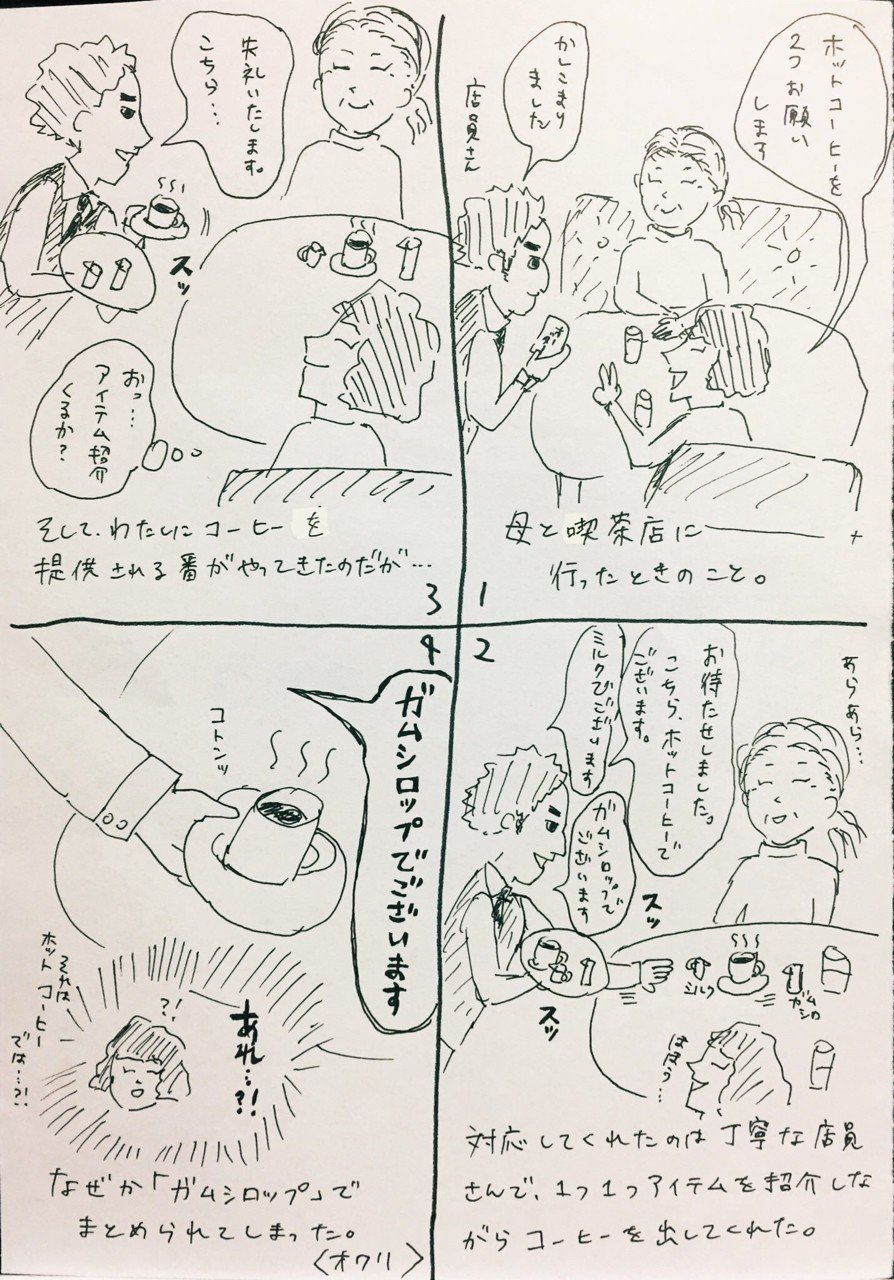 ホットコーヒーを
2つお願い
します
かしこまり
ました
店員さん
母と喫茶店に
行ったときのこと。
1
あらあら…
お待たせしました。
こちら、ホットコーヒーで
ございます。
ミルクでございます
ガムシロップで
ございます
スッ
スッ
ミルク
ガム
シロ
ほほう…
対応してくれたのは丁寧な店員
さんで、1つ1つアイテムを紹介しな
がらコーヒーを出してくれた。
2
失礼いたします。
こちら…
スッ
おっ…
アイテム紹介
くるか?
そして、わたしにコーヒーを
提供される番がやってきたのだが…
3
4
ガムシロップでございます
コトンッ
あれ…?!
?!
それは
ホットコーヒー
では…?!
なぜか「ガムシロップ」で
まとめられてしまった。
〈オワリ〉